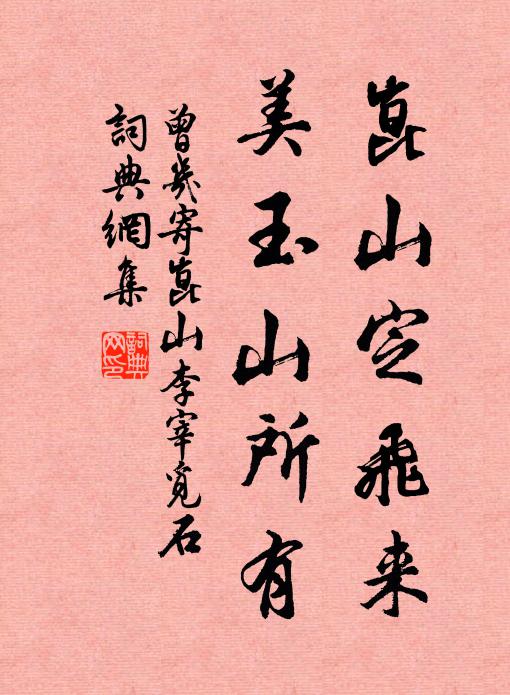 崑山定飛来
美玉山所有
曾幾寄崑山李宰覓石
詞典網集
詞典网印